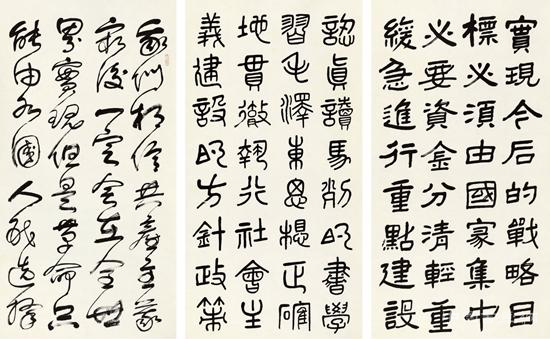 實現今后的戰略目
標必須由國家集中
必要資金分清輕重
緩急進行重點建設
認真讀馬列的書學
習毛澤東思想正確
地貫徹執行社會主
義建設的方針政策
我們相信共產主義
最後一定會在全世
界實現但是革命只
能由各國人民選擇